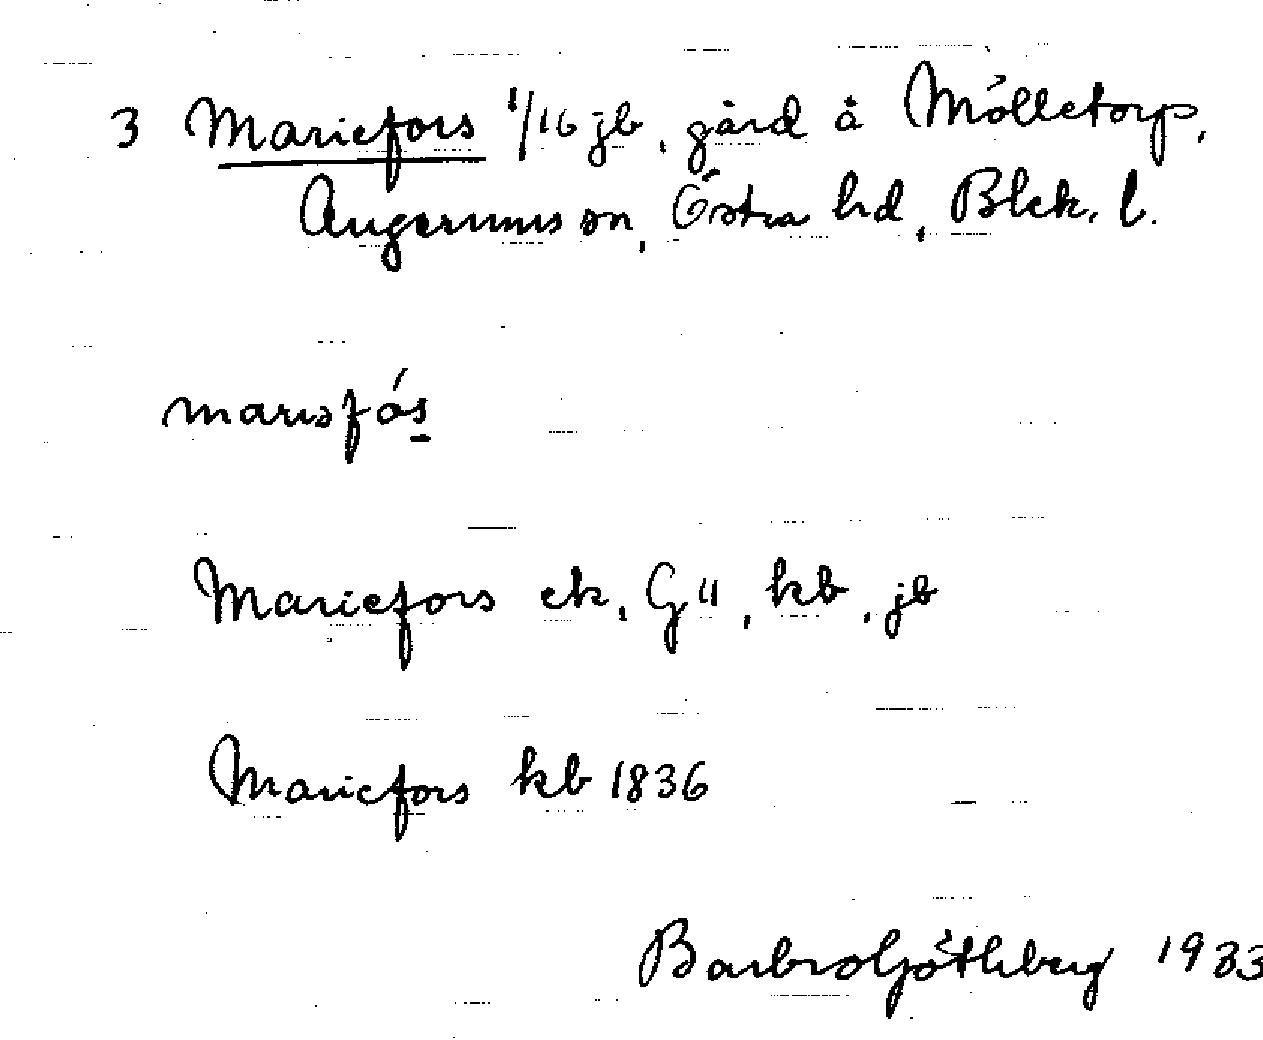 3 Mariefors 1/16 jb, gård å Mölletorp,
Augerums sn, Östra hd, Blek. l.
marisfós
Mariefors ek, G11, kb, jb
Mariefors kb 1836
Barbro Göthberg 1933